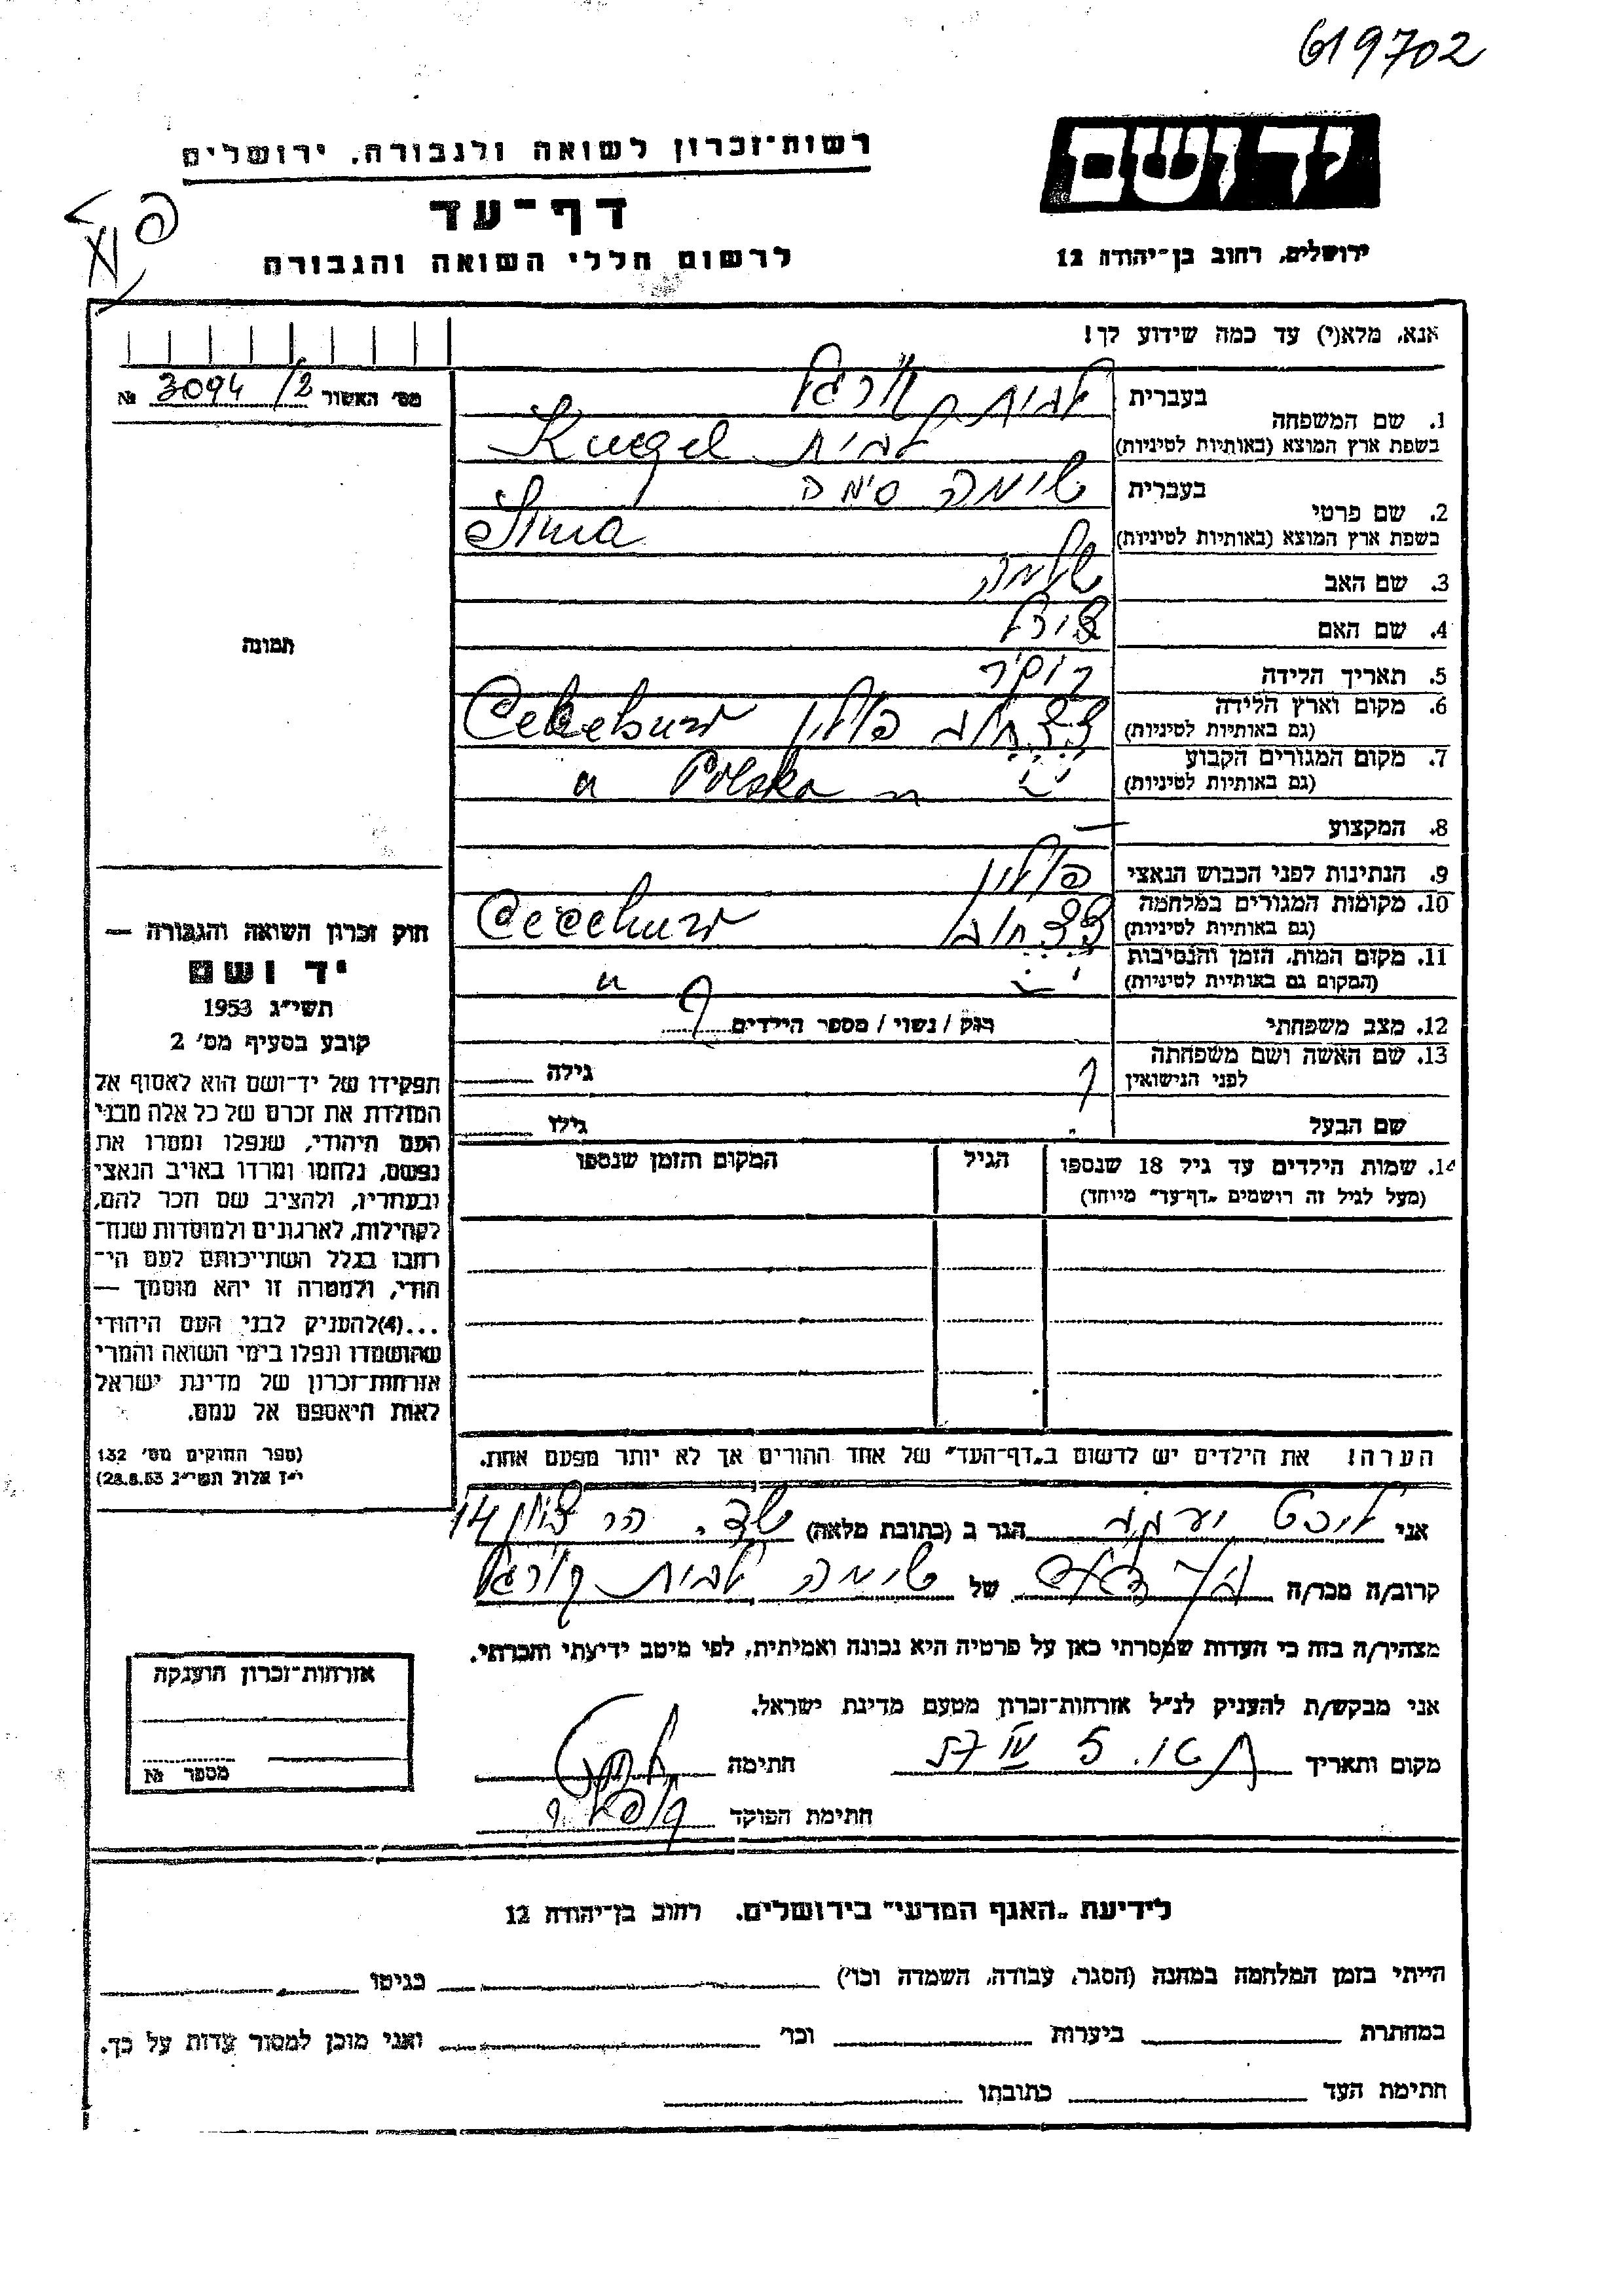 619702
יד ושם
רשות־זכרון לשואה ולגבורה, ירושלים
דף־עד
לרשום חללי השואה והגבורה
ירושלים, רחוב בן־יהודה 12
אנא, מלא(י) עד כמה שידוע לך!
מס׳ האשור 3094/2 №
תמונה
חוק זכרון השואה והגבורה —
יד ושם
תשי״ג 1953
קובע בסעיף מס׳ 2
תפקידו של יד־ושם הוא לאסוף אל
המולדת את זכרם של כל אלה מבני
העם היהודי, שנפלו ומסרו את
נפשם, נלחמו ומרדו באויב הנאצי
ובעוזריו, ולהציב שם וזכר להם,
לקהילות, לארגונים ולמוסדות שנח־
רבו בגלל השתייכותם לעם הי־
הודי, ולמטרה זו יהא מוסמך —
...(4) להעניק לבני העם היהודי
שהושמדו ונפלו בימי השואה והמרי
אזרחות־זכרון של מדינת ישראל
לאות היאספם אל עמם.
(ספר החוקים מס׳ 132
י״ז אלול תשי״ג 28.8.53)
1. שם המשפחה
בעברית
בשפת ארץ המוצא (באותיות לטיניות) Kuegel
2. שם פרטי
בעברית שימה סימה
בשפת ארץ המוצא (באותיות לטיניות) Sima
3. שם האב שלמה
4. שם האם
5. תאריך הלידה
6. מקום וארץ הלידה פולין
(גם באותיות לטיניות)
7. מקום המגורים הקבוע
(גם באותיות לטיניות) Polska
8. המקצוע —
9. הנתינות לפני הכבוש הנאצי פולין
10. מקומות המגורים במלחמה
(גם באותיות לטיניות)
11. מקום המות, הזמן והנסיבות
(המקום גם באותיות לטיניות)
12. מצב משפחתי רווק / נשוי / מספר הילדים ?
13. שם האשה ושם משפחתה
לפני הנישואין ? גילה
שם הבעל גילו
14. שמות הילדים עד גיל 18 שנספו הגיל המקום והזמן שנספו
(מעל לגיל זה רושמים „דף־עד״ מיוחד)
הערה! את הילדים יש לרשום ב„דף־העד״ של אחד ההורים אך לא יותר מפעם אחת.
אני הגר ב (כתובת מלאה) שד. הר ציון 14
קרוב/ה מכר/ה של שימה
מצהיר/ה בזה כי העדות שמסרתי כאן על פרטיה היא נכונה ואמיתית, לפי מיטב ידיעתי והכרתי.
אני מבקש/ת להעניק לנ״ל אזרחות־זכרון מטעם מדינת ישראל.
מקום ותאריך חתימה
חתימת הפוקד
אזרחות־זכרון הוענקה
מספר №
לידיעת „האגף המדעי״ בירושלים, רחוב בן־יהודה 12
הייתי בזמן המלחמה במחנה (הסגר, עבודה, השמדה וכו׳) בגיטו
במחתרת ביערות וכו׳ ואני מוכן למסור עדות על כך.
חתימת העד כתובתו